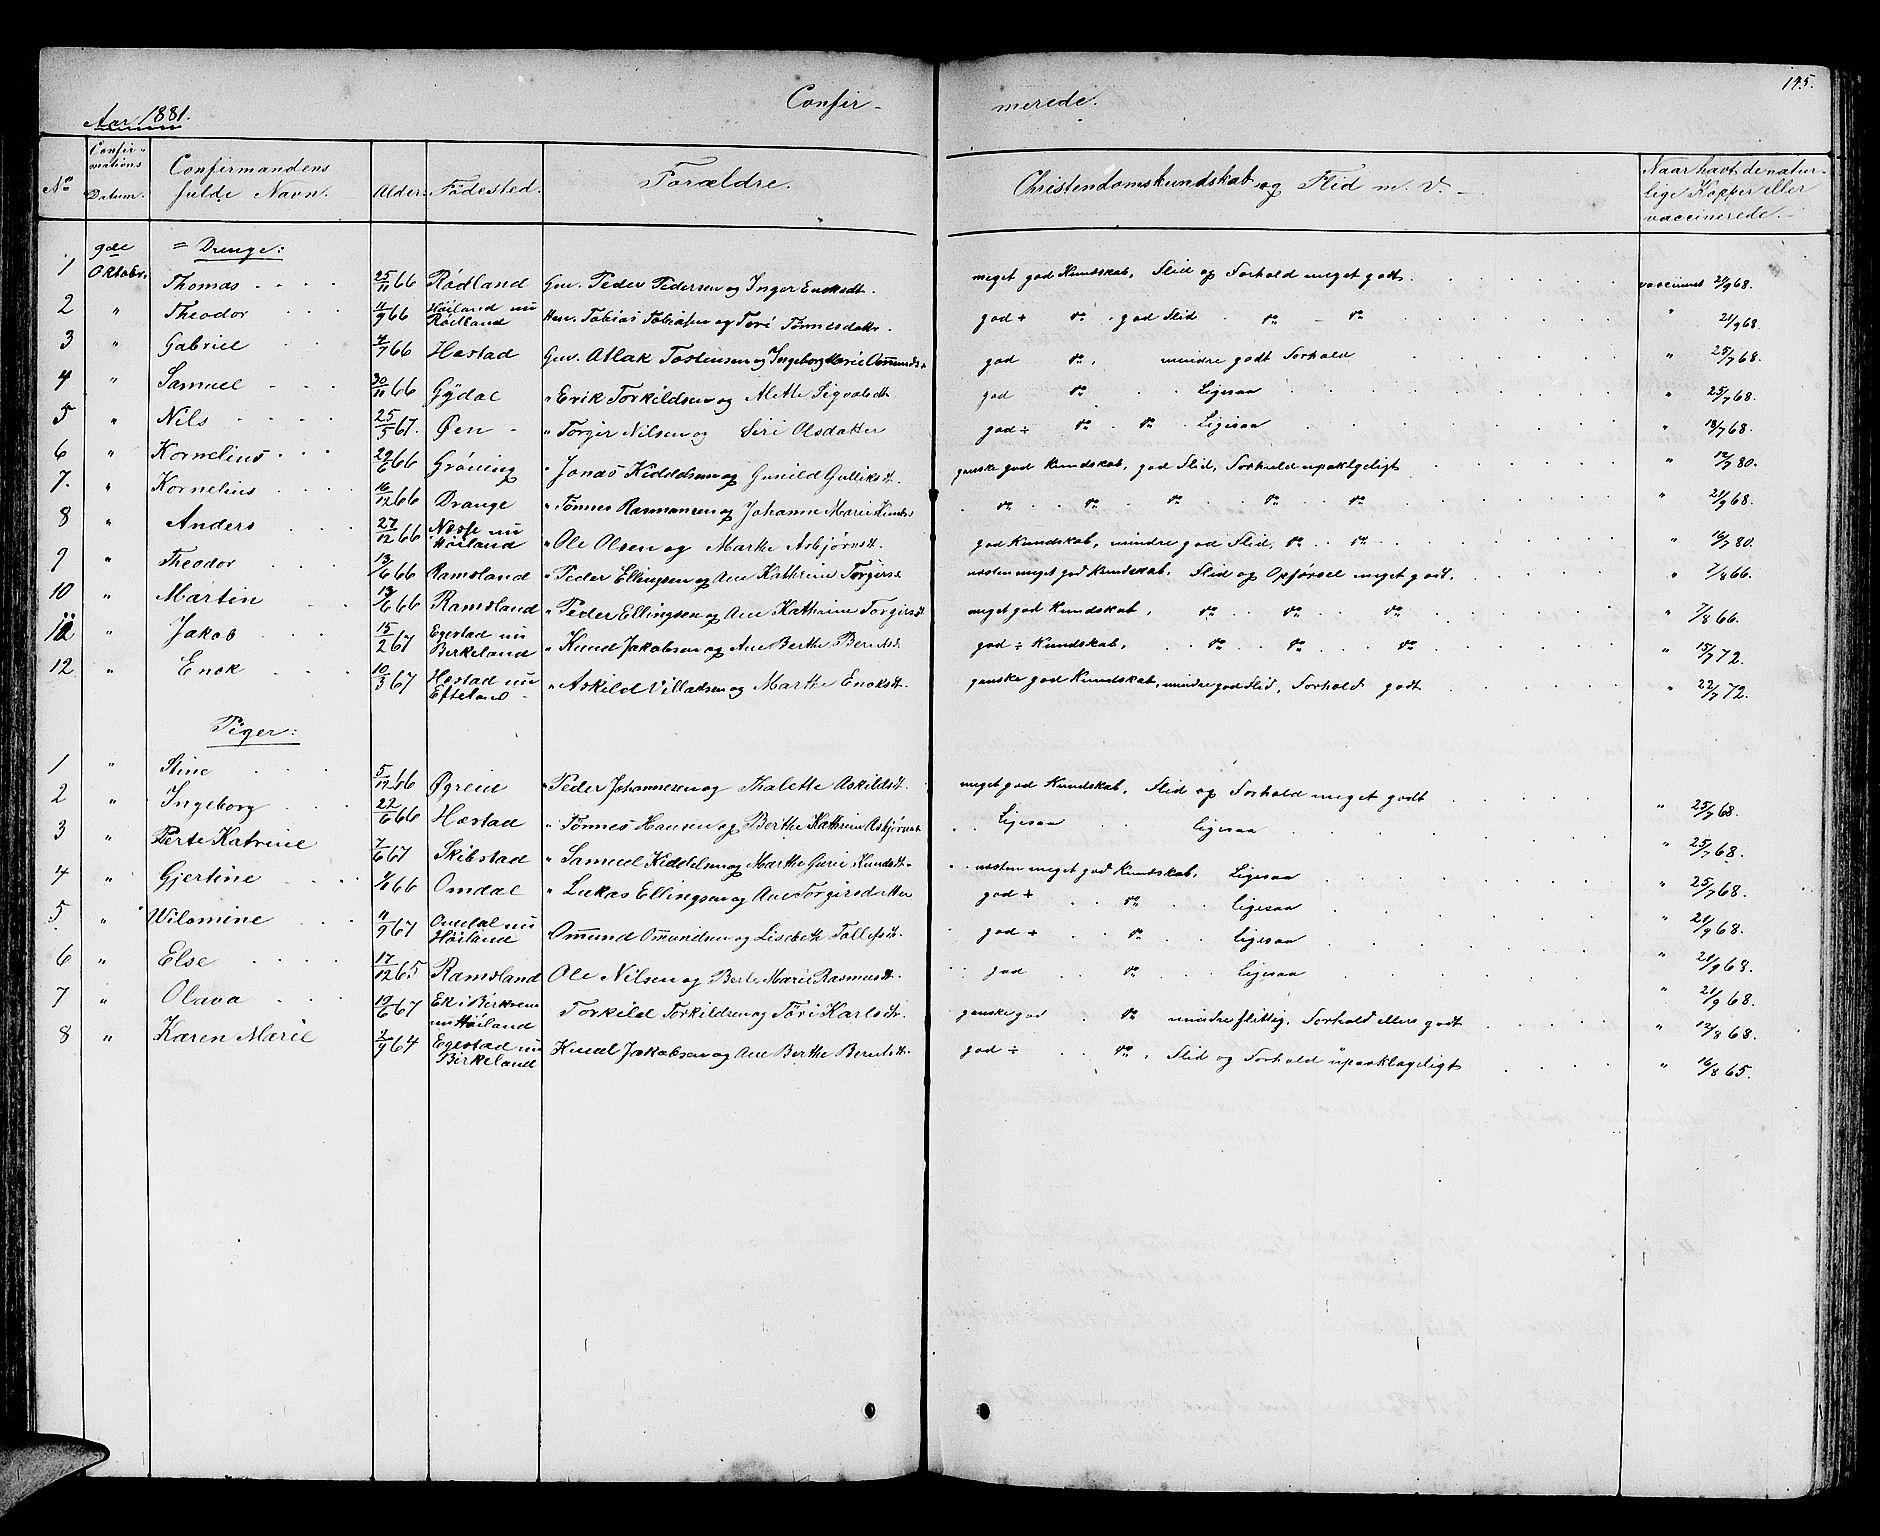 145.
Confir- merede.
Aar 1881.
No Confirmations Datum. Confirmandens fulde Navn. Alder. Fødested. Forældre. Christendomskundskab og Flid m. V. Naar havt de naturlige Kopper eller vaccinerede.
9de Oktober. = Drenge:
1 Thomas 25/11 66 Rødland Gm. Peder Pedersen og Inger Enoksdt. meget god Kundskab, Flid og Forhold meget godt vaccineret 21/9 68.
2 " Theodor 11/9 66 Høiland nu Rødland Hm. Tobias Tobiasen og Tori Tønnesdattr. god + do. god Flid do do " 21/9 68.
3 " Gabriel 4/7 66 Hæstad Gm. Atlak Tostensen og Ingeborg Marie Omunds god do, mindre godt Forhold " 25/7 68.
4 " Samuel 30/11 66 Gydal " Erik Torkildsen og Mette Sigvalsdt god do Ligesaa " 25/7 68.
5 " Nils 25/5 67. Øen " Torger Nilsen og Siri Olsdatter god ÷ do do Ligesaa " 18/7 68.
6 " Kornelius 29/6 66 Grøning " Jonas Kiddelsen og Gunild Gulliksdt. ganske god Kundskab, god Flid, Forhold upaaklageligt " 12/7 80.
7. " Kornelius 16/12 66 Drange " Tønnes Rasmussen og Johanne Marie Knuds do do do do do " 21/9 68.
8 " Anders 27/12 66 Nesse nu Høiland " Ole Olsen og Marthe Asbjørnsdt. god Kundskab, mindre god Flid, do do " 16/7 80.
9 " Theodor 13/6 66 Ramsland " Peder Ellingsen og Ane Kathrine Torgers næsten meget god Kundskab, Flid og Opførsel meget godt. " 7/8 66.
10 " Martin 13/6 66 Ramsland " Peder Ellingsen og Ane Kathrine Torgersdt meget god Kundskab, do do do " 7/8 66.
11 " Jakob 15/2 67 Egestad nu Birkeland " Knud Jakobsen og Ane Berthe Berntsd god ÷ Kundskab, do do do " 15/7 72.
12 " Enok 10/3 67 Hæstad nu Efteland " Askild Villadsen og Marthe Enoksdt. ganske god Kundskab, mindre god Flid, Forhold godt " 22/7 72.
Piger:
1 " Stine 5/12 66 Øgreid " Peder Johannesen og Thalette Askildsdt. meget god Kundskab, Flid og Forhold meget godt " 25/7 68.
2 " Ingeborg 22/6 66 Hæstad " Tønnes Hansen og Berthe Kathrine Asbjørnsdt Ligesaa Ligesaa " 25/7 68.
3 " Perte Katrine 7/6 67 Skibstad " Samuel Kiddelsen og Marthe Gurie Knudsdt. næsten meget god Kundskab, Ligesaa " 25/7 68.
4 " Gjertine 66 Omdal " Lukas Ellingsen og Ane Torgersdatter god + do Ligesaa " 21/9 68.
5 " Wilomine 11/9 67 Omdal nu Høiland " Omund Omundsen og Lisebeth Tollefsdt. god + do Ligesaa " 21/9 68.
6 " Else 17/12 65 Ramsland Ole Nilsen og Berte Marie Rasmusdt. god do Ligesaa " 21/9 68.
7 " Olava 19/6 67 Eli Birkrem nu Høiland Torkild Torkildsen og Tøri Karlsdt. ganske god do mindre flittig, Forhold ellers godt " 12/8 68.
8 " Karen Marie 2/9 64 Egestad nu Birkeland Knud Jakobsen og Ane Berthe Berntsdt. god ÷ do, Flid og Forhold upaaklageligt " 16/8 65.